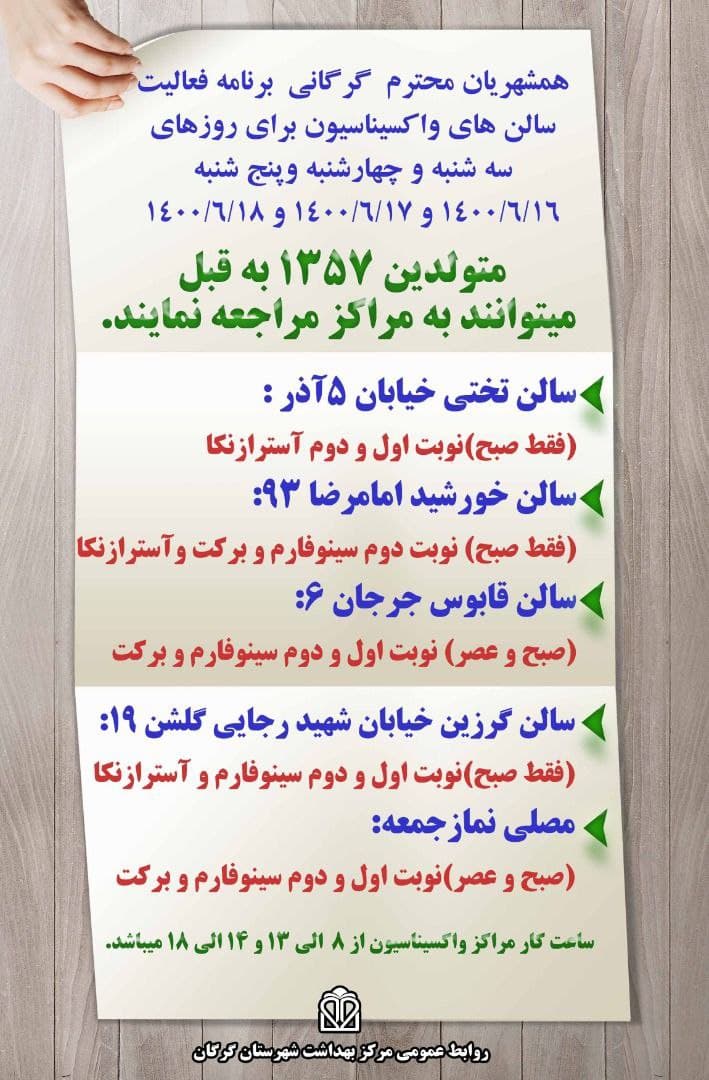 همشهریان محترم گرگانی برنامه فعالیت
سالن های واکسیناسیون برای روزهای
سه شنبه و چهارشنبه وپنج شنبه
۱۴۰۰/۶/۱۶ و ۱۴۰۰/۶/۱۷ و ۱۴۰۰/۶/۱۸
متولدین ۱۳۵۷ به قبل
میتوانند به مراکز مراجعه نمایند.
سالن تختی خیابان ۵آذر :
(فقط صبح)نوبت اول و دوم آسترازنکا
سالن خورشید امامرضا ۹۳:
(فقط صبح) نوبت دوم سینوفارم و برکت وآسترازنکا
سالن قابوس جرجان ۶:
(صبح و عصر) نوبت اول و دوم سینوفارم و برکت
سالن گرزین خیابان شهید رجایی گلشن ۱۹:
(فقط صبح)نوبت اول و دوم سینوفارم و آسترازنکا
مصلی نمازجمعه:
(صبح و عصر)نوبت اول و دوم سینوفارم و برکت
ساعت کار مراکز واکسیناسیون از ۸ الی ۱۳ و ۱۴ الی ۱۸ میباشد.
روابط عمومی مرکز بهداشت شهرستان گرگان